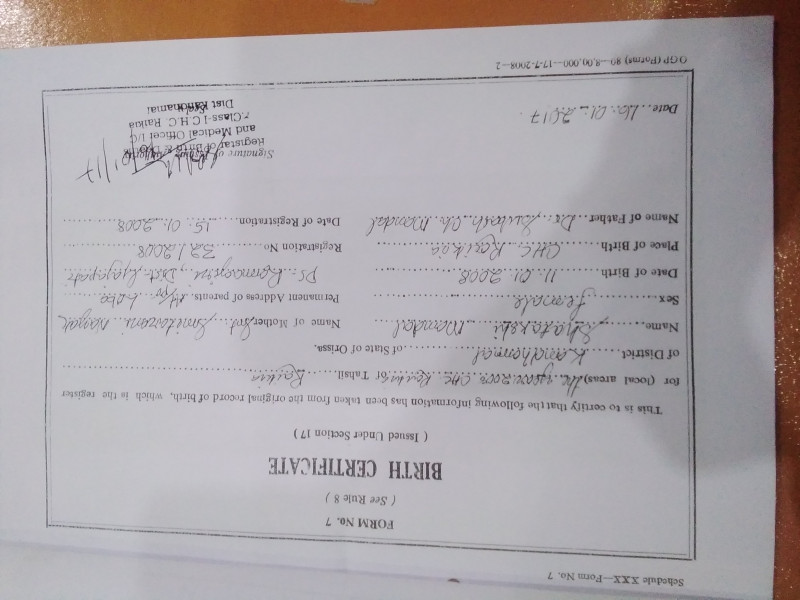 Schedule XXX—Form No. 7
FORM No. 7
( See Rule 8 )
BIRTH CERTIFICATE
( Issued Under Section 17 )
This is to certify that the following information has been taken from the original record of birth, which is the register
for (local areas) the year 2008 CHC Raikia of Tahsil Raikia
of District Kandhamal of State of Orissa.
Name Mandal Name of Mother Smt
Sex Female Permanent Address of parents.
Date of Birth 11.01.2008 Dist. Gajapati
Place of Birth CHC Raikia Registration No 32 / 2008
Name of Father Dr. Ch. Mandal Date of Registration 15.01.2008
Signature of
Registrar of Birth &
and Medical Officer I/C
Class-I C.H.C. Raikia
Dist Kandhamal
Date 01.2017
OGP (Forms) 80—8,00,000—17-7-2008—2